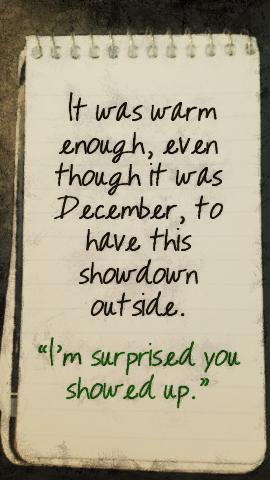 It was warm
enough, even
though it was
December, to
have this
showdown
outside.
“I'm surprised you
showed up.”